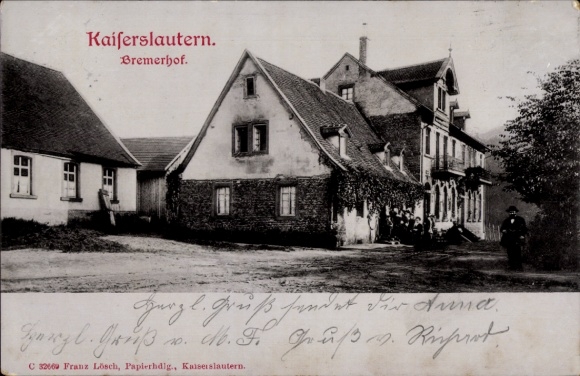 Kaiserslautern.
Bremerhof.
Herzl. Gruß sendet dir Anna.
Herzl. Gruß v. M. F. Gruß v. Richard
C 32669 Franz Lösch, Papierhdlg., Kaiserslautern.